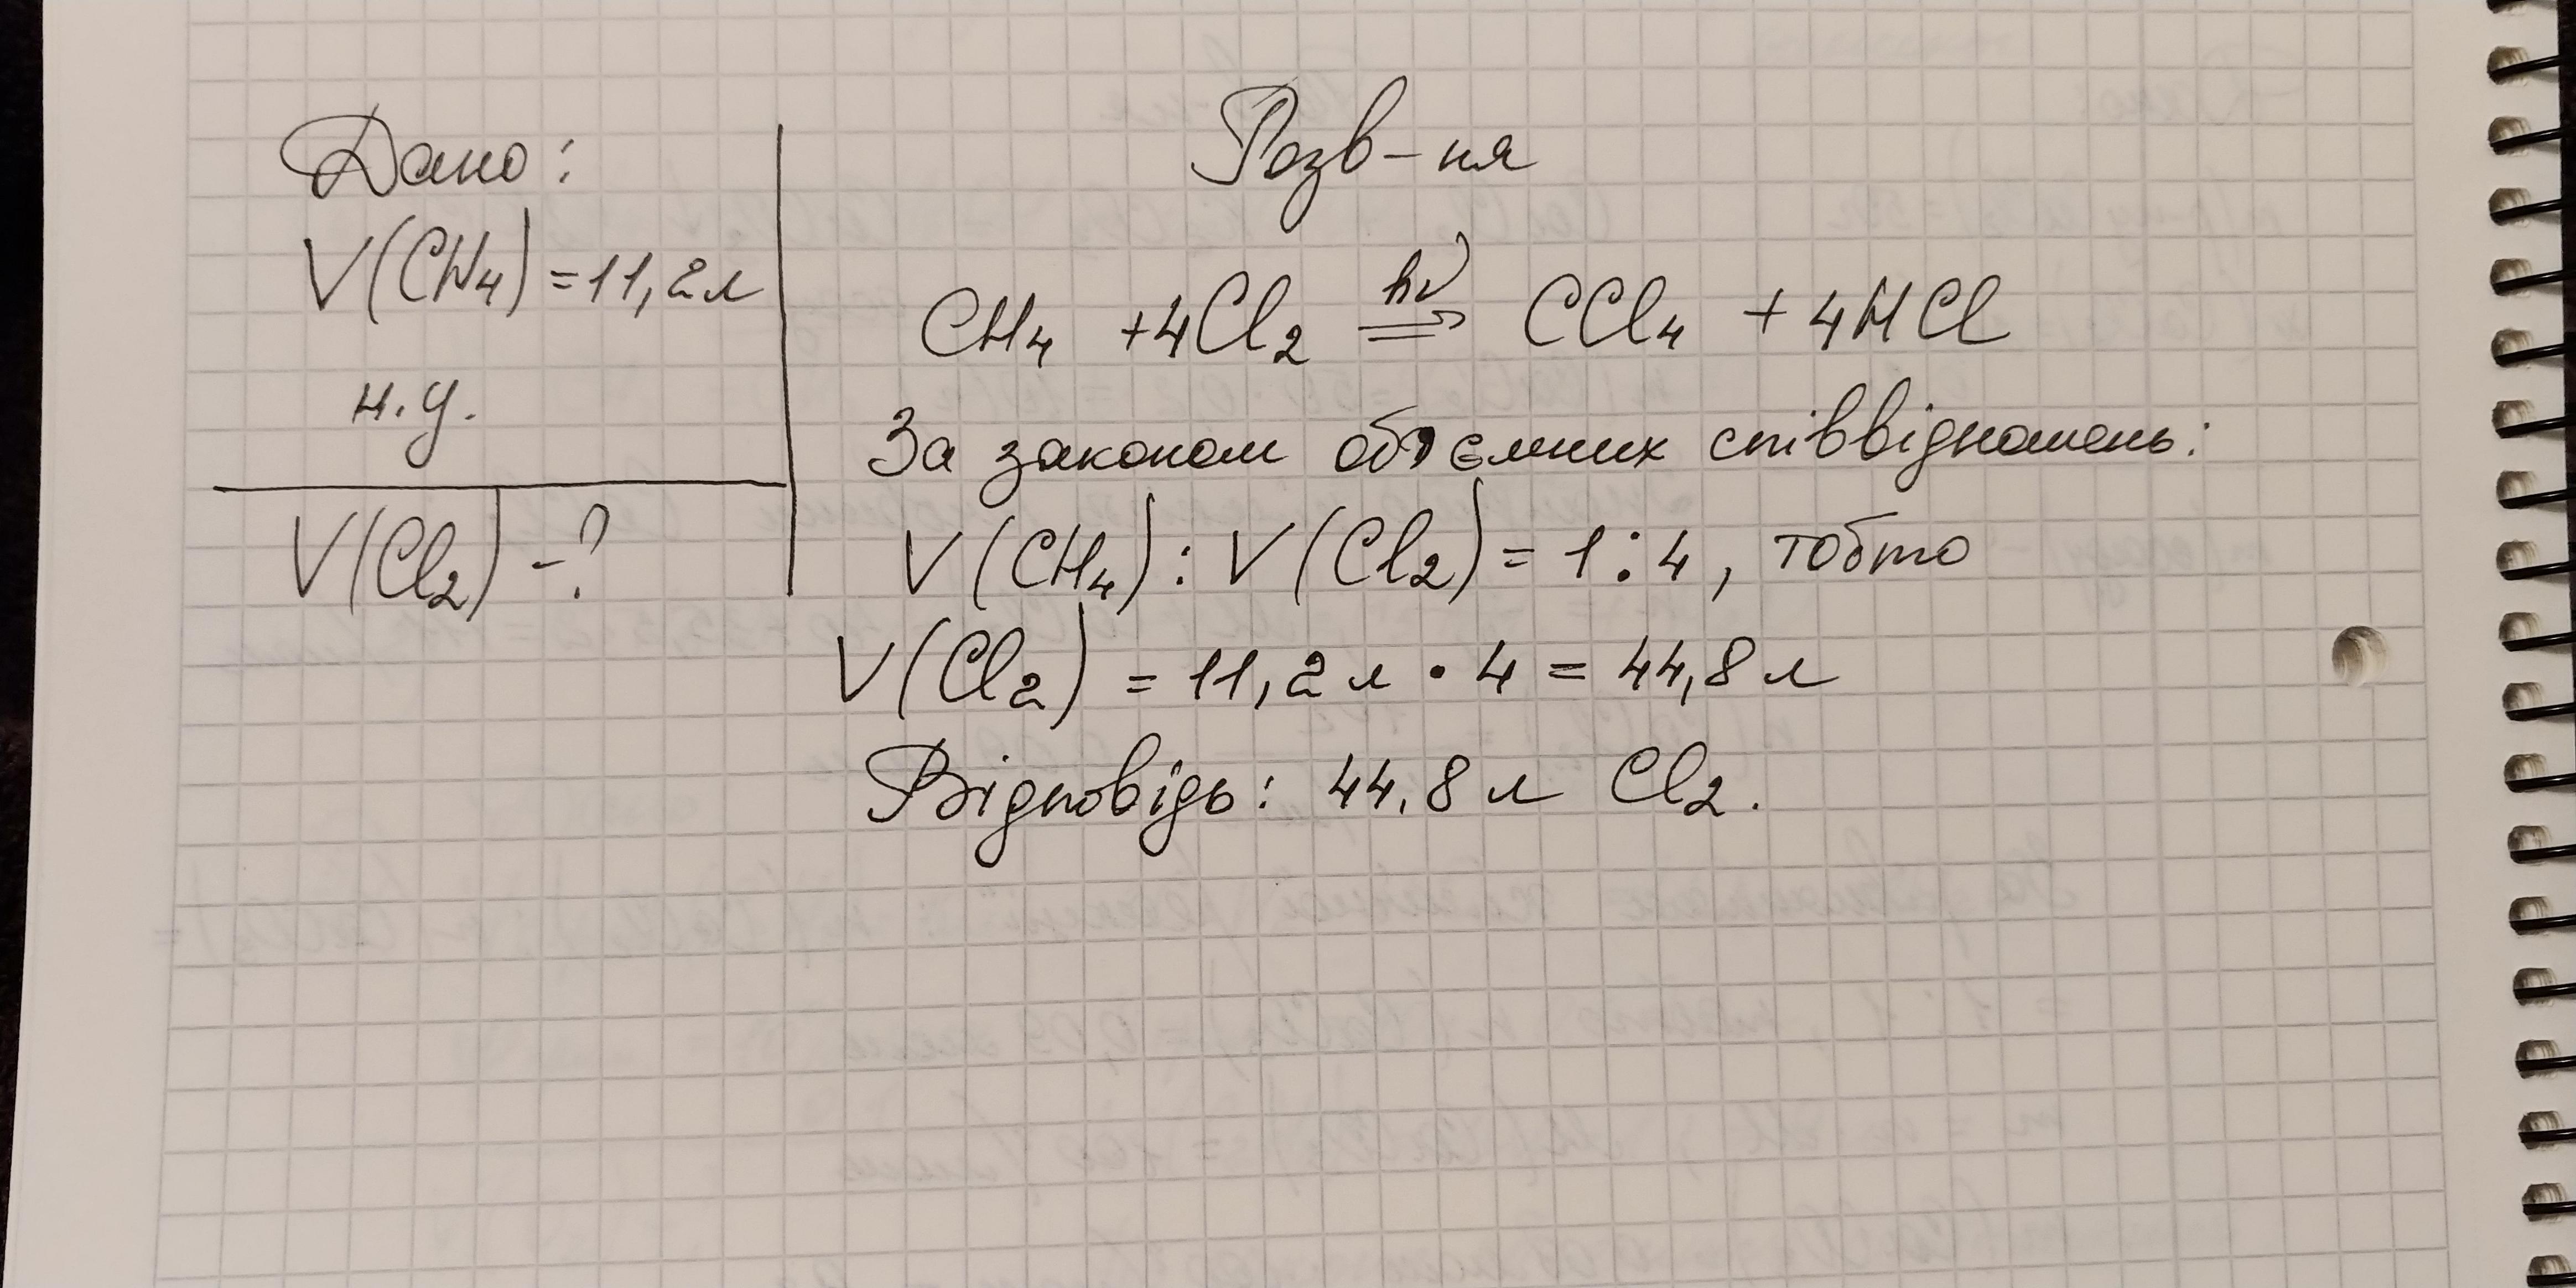 Дано:
V(CH₄) = 11,2 л
н.у.
V(Cl₂) - ?
Розв-ня
CH₄ + 4Cl₂ ⇒ CCl₄ + 4HCl
hν
За законом об'ємних співвідношень:
V(CH₄) : V(Cl₂) = 1 : 4, тобто
V(Cl₂) = 11,2 л • 4 = 44,8 л
Відповідь: 44,8 л Cl₂.